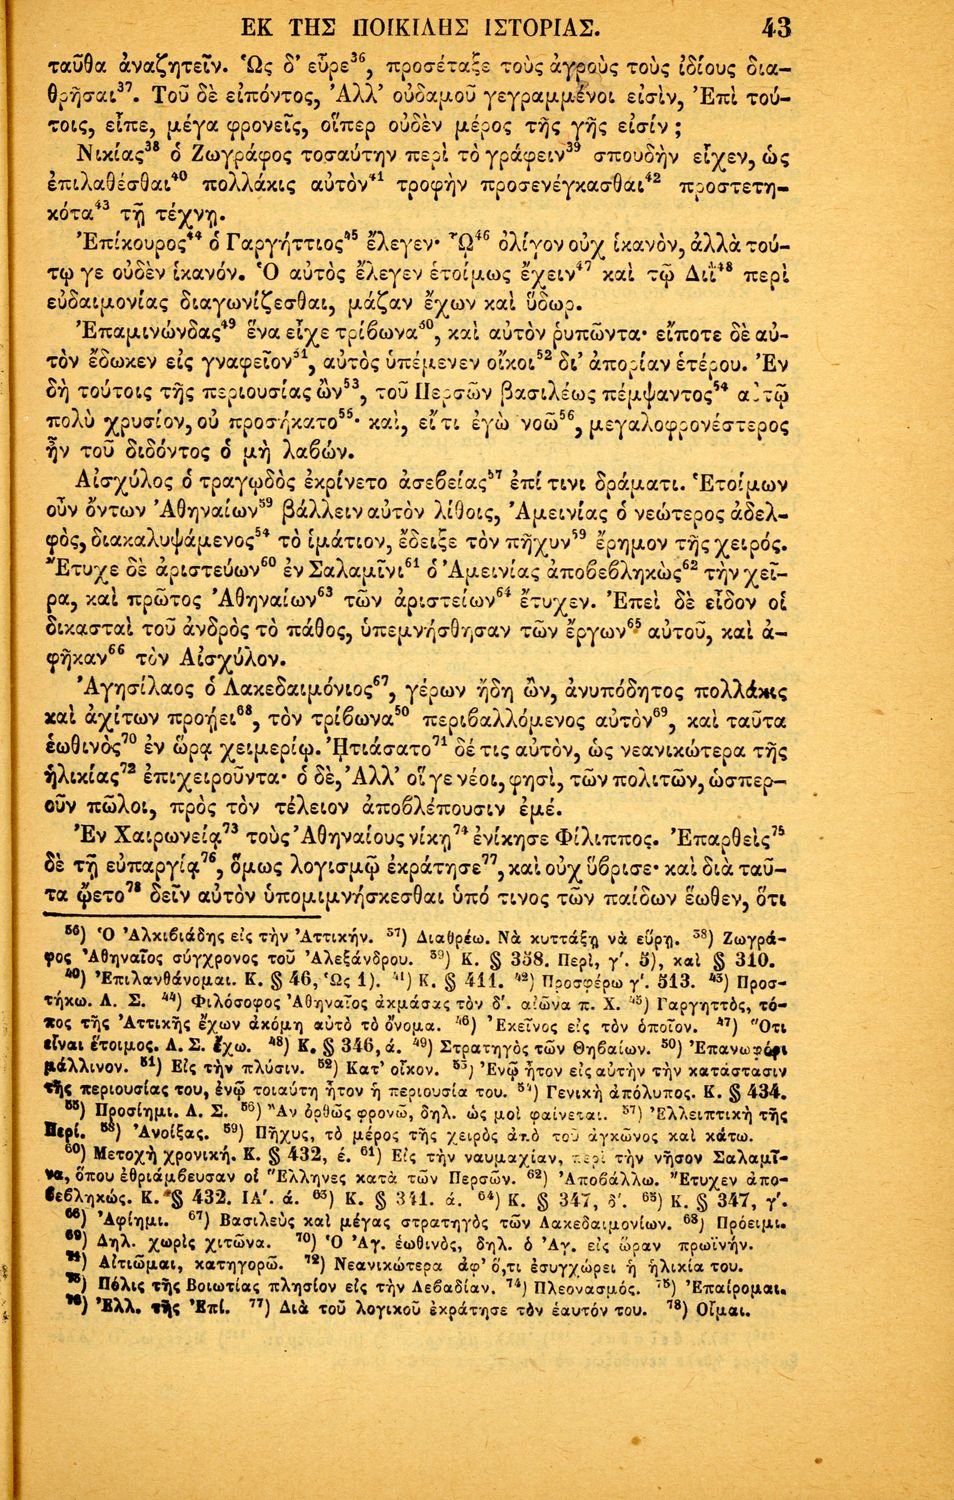 ΕΚ ΤΗΣ ΠΟΙΚΙΛΗΣ ΙΣΤΟΡΙΑΣ. 43
ταῦθα ἀναζητεῖν. Ὡς δ' εὗρε³⁶, προσέταξε τοὺς ἀγροὺς τοὺς ἰδίους δια-
θρῆσαι³⁷. Τοῦ δὲ εἰπόντος, Ἀλλ' οὐδαμοῦ γεγραμμένοι εἰσὶν, Ἐπὶ τού-
τοις, εἶπε, μέγα φρονεῖς, οἵπερ οὐδὲν μέρος τῆς γῆς εἰσίν ;
Νικίας³⁸ ὁ Ζωγράφος τοσαύτην περὶ τὸ γράφειν³⁹ σπουδὴν εἶχεν, ὡς
ἐπιλαθέσθαι⁴⁰ πολλάκις αὐτὸν⁴¹ τροφὴν προσενέγκασθαι⁴² προστετη-
κότα⁴³ τῇ τέχνῃ.
Ἐπίκουρος⁴⁴ ὁ Γαργήττιος⁴⁵ ἔλεγεν· Ὧ⁴⁶ ὀλίγον οὐχ ἱκανὸν, ἀλλὰ τού-
τῳ γε οὐδὲν ἱκανόν. Ὁ αὐτὸς ἔλεγεν ἑτοίμως ἔχειν⁴⁷ καὶ τῷ Διῒ⁴⁸ περὶ
εὐδαιμονίας διαγωνίζεσθαι, μάζαν ἔχων καὶ ὕδωρ.
Ἐπαμινώνδας⁴⁹ ἕνα εἶχε τρίβωνα⁵⁰, καὶ αὐτὸν ῥυπῶντα· εἴποτε δὲ αὐ-
τὸν ἔδωκεν εἰς γναφεῖον⁵¹, αὐτὸς ὑπέμενεν οἴκοι⁵² δι' ἀπορίαν ἑτέρου. Ἐν
δὴ τούτοις τῆς περιουσίας ὢν⁵³, τοῦ Περσῶν βασιλέως πέμψαντος⁵⁴ αὐτῷ
πολὺ χρυσίον, οὐ προσήκατο⁵⁵· καὶ, εἴ τι ἐγὼ νοῶ⁵⁶, μεγαλοφρονέστερος
ἦν τοῦ διδόντος ὁ μὴ λαβών.
Αἰσχύλος ὁ τραγῳδὸς ἐκρίνετο ἀσεβείας⁵⁷ ἐπί τινι δράματι. Ἑτοίμων
οὖν ὄντων Ἀθηναίων⁵⁹ βάλλειν αὐτὸν λίθοις, Ἀμεινίας ὁ νεώτερος ἀδελ-
φὸς, διακαλυψάμενος⁵⁴ τὸ ἱμάτιον, ἔδειξε τὸν πῆχυν⁵⁹ ἔρημον τῆς χειρός.
Ἔτυχε δὲ ἀριστεύων⁶⁰ ἐν Σαλαμῖνι⁶¹ ὁ Ἀμεινίας ἀποβεβληκὼς⁶² τὴν χεῖ-
ρα, καὶ πρῶτος Ἀθηναίων⁶³ τῶν ἀριστείων⁶⁴ ἔτυχεν. Ἐπεὶ δὲ εἶδον οἱ
δικασταὶ τοῦ ἀνδρὸς τὸ πάθος, ὑπεμνήσθησαν τῶν ἔργων⁶⁵ αὐτοῦ, καὶ ἀ-
φῆκαν⁶⁶ τὸν Αἰσχύλον.
Ἀγησίλαος ὁ Λακεδαιμόνιος⁶⁷, γέρων ἤδη ὢν, ἀνυπόδητος πολλάκις
καὶ ἀχίτων προῄει⁶⁸, τὸν τρίβωνα⁵⁰ περιβαλλόμενος αὐτὸν⁶⁹, καὶ ταῦτα
ἑωθινὸς⁷⁰ ἐν ὥρᾳ χειμερίῳ. Ἠτιάσατο⁷¹ δέ τις αὐτὸν, ὡς νεανικώτερα τῆς
ἡλικίας⁷² ἐπιχειροῦντα· ὁ δὲ, Ἀλλ' οἵ γε νέοι, φησὶ, τῶν πολιτῶν, ὡσπερ-
οῦν πῶλοι, πρὸς τὸν τέλειον ἀποβλέπουσιν ἐμέ.
Ἐν Χαιρωνείᾳ⁷³ τοὺς Ἀθηναίους νίκῃ⁷⁴ ἐνίκησε Φίλιππος. Ἐπαρθεὶς⁷⁵
δὲ τῇ εὐπραγίᾳ⁷⁶, ὅμως λογισμῷ ἐκράτησε⁷⁷, καὶ οὐχ ὕβρισε· καὶ διὰ ταῦ-
τα ᾤετο⁷⁸ δεῖν αὐτὸν ὑπομιμνήσκεσθαι ὑπό τινος τῶν παίδων ἕωθεν, ὅτι
³⁶) Ὁ Ἀλκιβιάδης εἰς τὴν Ἀττικήν. ³⁷) Διαθρέω. Νὰ κυττάξῃ νὰ εὕρῃ. ³⁸) Ζωγρά-
φος Ἀθηναῖος σύγχρονος τοῦ Ἀλεξάνδρου. ³⁹) Κ. § 358. Περὶ, γ'. 5), καὶ § 310.
⁴⁰) Ἐπιλανθάνομαι. Κ. § 46, Ὡς 1). ⁴¹) Κ. § 411. ⁴²) Προσφέρω γ'. 513. ⁴³) Προσ-
τήκω. Λ. Σ. ⁴⁴) Φιλόσοφος Ἀθηναῖος ἀκμάσας τὸν δ'. αἰῶνα π. Χ. ⁴⁵) Γαργηττὸς, τό-
πος τῆς Ἀττικῆς ἔχων ἀκόμη αὐτὸ τὸ ὄνομα. ⁴⁶) Ἐκεῖνος εἰς τὸν ὁποῖον. ⁴⁷) Ὅτι
εἶναι ἕτοιμος. Λ. Σ. ἔχω. ⁴⁸) Κ. § 346, ά. ⁴⁹) Στρατηγὸς τῶν Θηβαίων. ⁵⁰) Ἐπανωφόρι
μάλλινον. ⁵¹) Εἰς τὴν πλύσιν. ⁵²) Κατ' οἶκον. ⁵³) Ἐνῷ ἦτον εἰς αὐτὴν τὴν κατάστασιν
τῆς περιουσίας του, ἐνῷ τοιαύτη ἦτον ἡ περιουσία του. ⁵⁴) Γενικὴ ἀπόλυτος. Κ. § 434.
⁵⁵) Προσίημι. Λ. Σ. ⁵⁶) Ἂν ὀρθῶς φρονῶ, δηλ. ὡς μοὶ φαίνεται. ⁵⁷) Ἐλλειπτικὴ τῆς
Περί. ⁵⁸) Ἀνοίξας. ⁵⁹) Πῆχυς, τὸ μέρος τῆς χειρὸς ἀπὸ τοῦ ἀγκῶνος καὶ κάτω.
⁶⁰) Μετοχὴ χρονική. Κ. § 432, έ. ⁶¹) Εἰς τὴν ναυμαχίαν, περὶ τὴν νῆσον Σαλαμῖ-
να, ὅπου ἐθριάμβευσαν οἱ Ἕλληνες κατὰ τῶν Περσῶν. ⁶²) Ἀποβάλλω. Ἔτυχεν ἀπο-
βεβληκώς. Κ. § 432. ΙΑ'. ά. ⁶³) Κ. § 341. ά. ⁶⁴) Κ. § 347, δ'. ⁶⁵) Κ. § 347, γ'.
⁶⁶) Ἀφίημι. ⁶⁷) Βασιλεὺς καὶ μέγας στρατηγὸς τῶν Λακεδαιμονίων. ⁶⁸) Πρόειμι.
⁶⁹) Δηλ. χωρὶς χιτῶνα. ⁷⁰) Ὁ Ἀγ. ἑωθινὸς, δηλ. ὁ Ἀγ. εἰς ὥραν πρωϊνήν.
⁷¹) Αἰτιῶμαι, κατηγορῶ. ⁷²) Νεανικώτερα ἀφ' ὅ,τι ἐσυγχώρει ἡ ἡλικία του.
⁷³) Πόλις τῆς Βοιωτίας πλησίον εἰς τὴν Λεβαδίαν. ⁷⁴) Πλεονασμός. ⁷⁵) Ἐπαίρομαι.
⁷⁶) Ἐλλ. τῆς Ἐπί. ⁷⁷) Διὰ τοῦ λογικοῦ ἐκράτησε τὸν ἑαυτόν του. ⁷⁸) Οἶμαι.